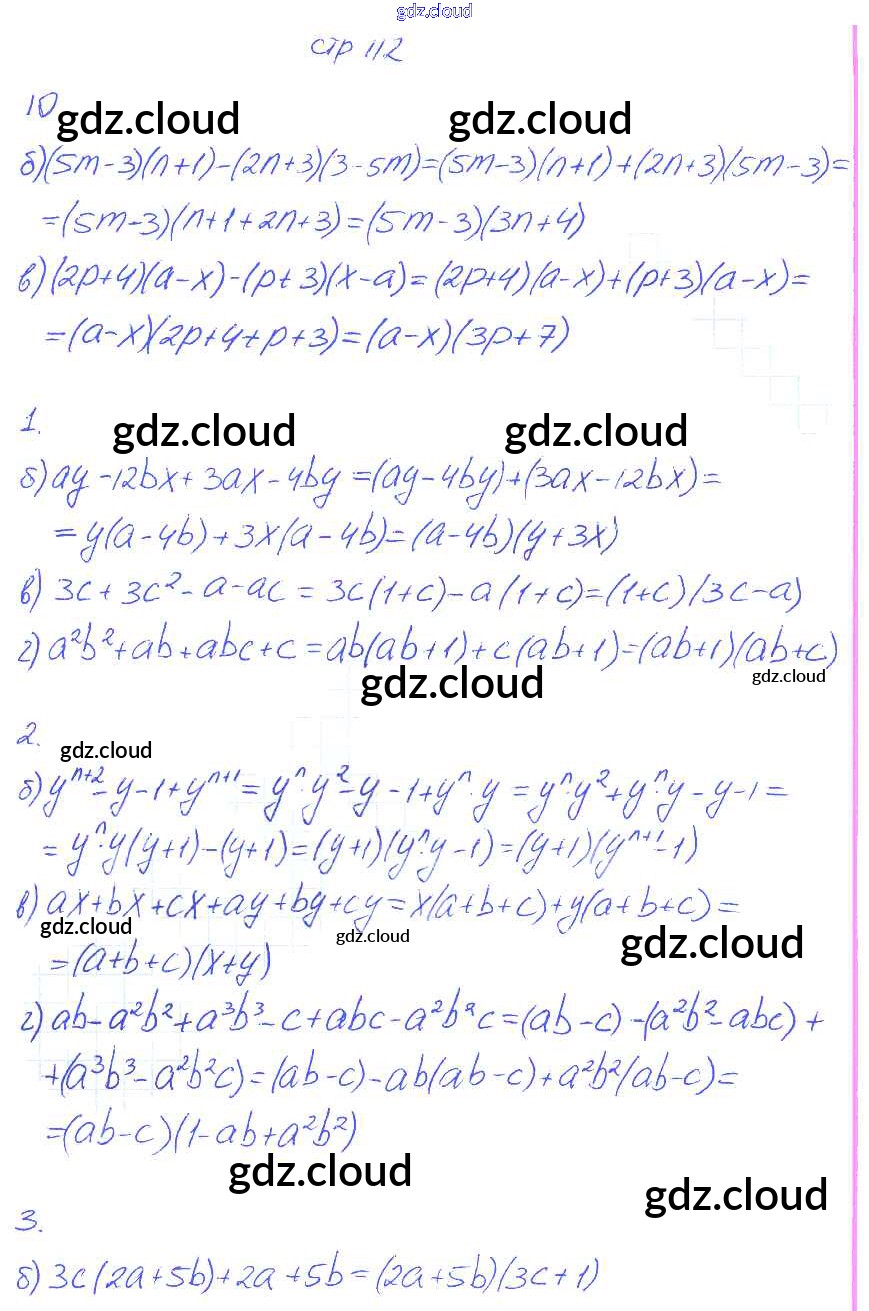 gdz.cloud
стр 112
10
gdz.cloud gdz.cloud
б)(5m-3)(n+1)-(2n+3)(3-5m)=(5m-3)(n+1)+(2n+3)(5m-3)=
=(5m-3)(n+1+2n+3)=(5m-3)(3n+4)
в)(2p+4)(a-x)-(p+3)(x-a)=(2p+4)(a-x)+(p+3)(a-x)=
=(a-x)(2p+4+p+3)=(a-x)(3p+7)
1.
gdz.cloud gdz.cloud
б)ay-12bx+3ax-4by=(ay-4by)+(3ax-12bx)=
=y(a-4b)+3x(a-4b)=(a-4b)(y+3x)
в) 3c+3c²-a-ac=3c(1+c)-a(1+c)=(1+c)(3c-a)
г) a²b²+ab+abc+c=ab(ab+1)+c(ab+1)=(ab+1)(ab+c)
gdz.cloud gdz.cloud
2.
gdz.cloud
б)yⁿ⁺²-y-1+yⁿ⁺¹=yⁿ·y²-y-1+yⁿ·y=yⁿy²+yⁿy-y-1=
=yⁿ·y(y+1)-(y+1)=(y+1)(yⁿ·y-1)=(y+1)(yⁿ⁺¹-1)
в) ax+bx+cx+ay+by+cy=x(a+b+c)+y(a+b+c)=
gdz.cloud gdz.cloud gdz.cloud
=(a+b+c)(x+y)
г) ab-a²b²+a³b³-c+abc-a²b²c=(ab-c)-(a²b²-abc)+
+(a³b³-a²b²c)=(ab-c)-ab(ab-c)+a²b²(ab-c)=
=(ab-c)(1-ab+a²b²)
gdz.cloud gdz.cloud
3.
б) 3c(2a+5b)+2a+5b=(2a+5b)(3c+1)